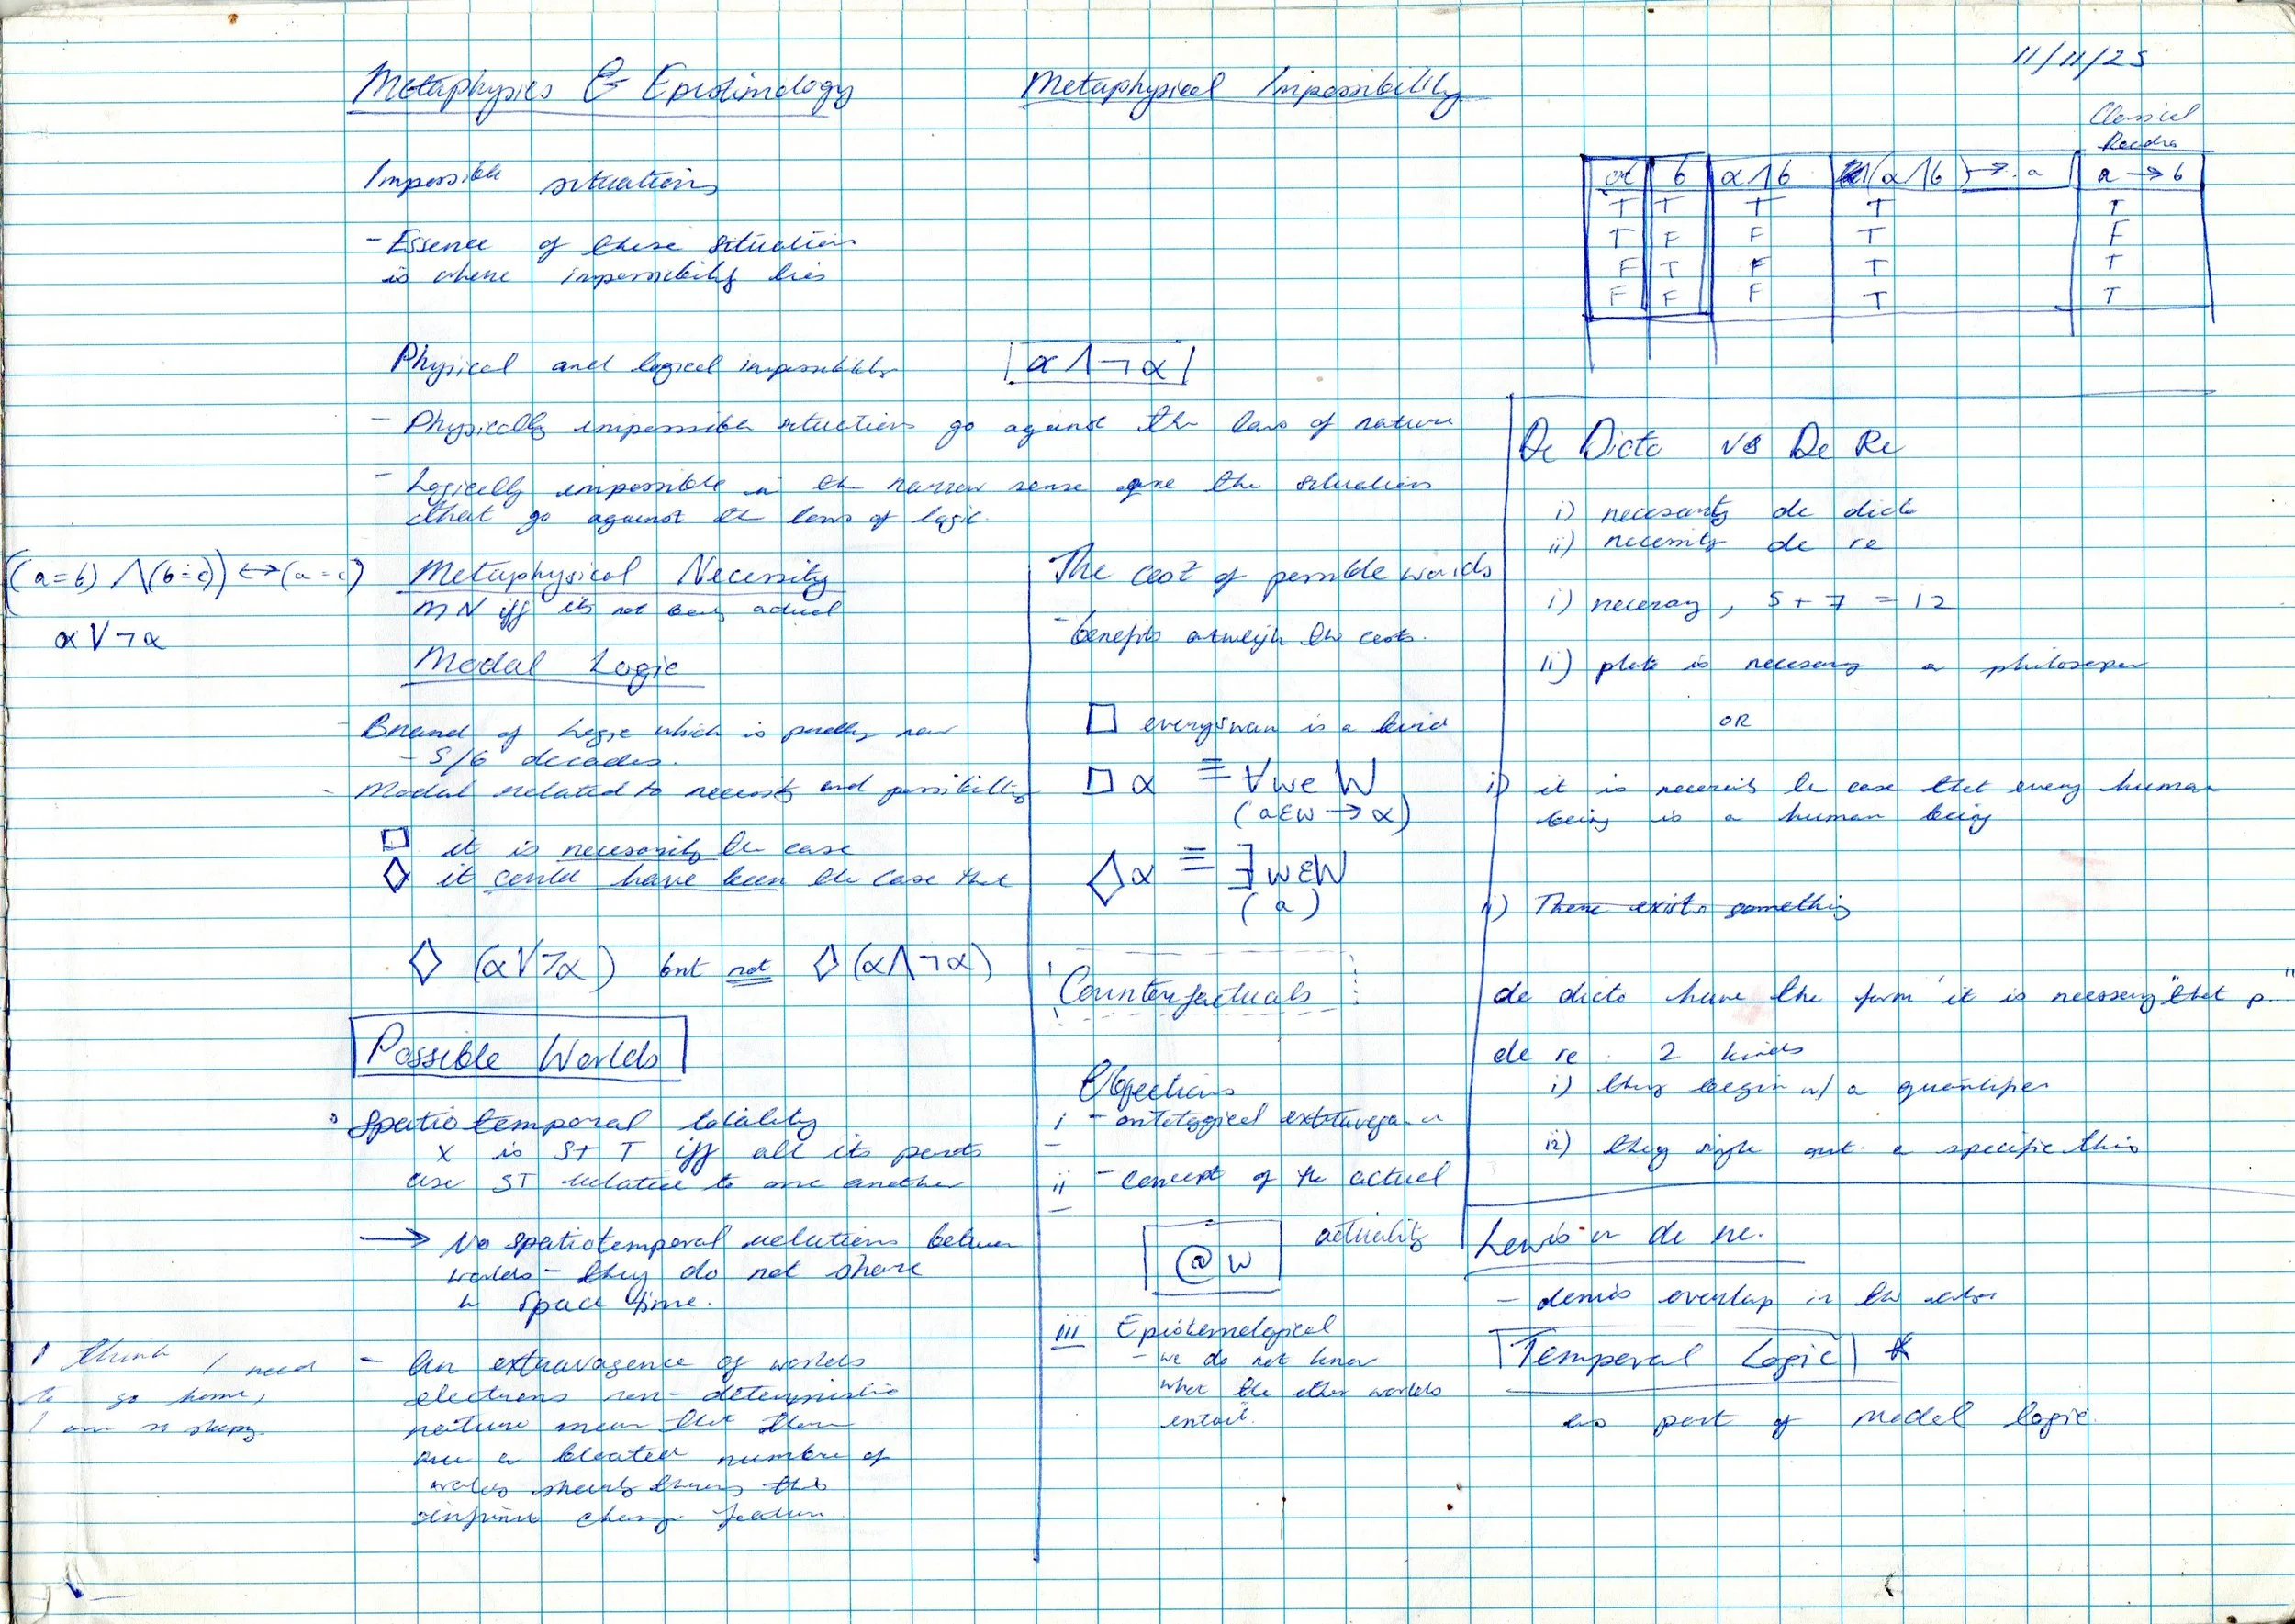 11/11/25
Metaphysics & Epistimology
Metaphysical Impossibility
Classical
α b α∧b (α∧b) → a a → b
T T T T T
T F F T F
F T F T T
F F F T T
Impossible situations
- Essence of these situations
is where impossibility lies
Physical and logical impossibility
α∧¬α
- Physically impossible situations go against the laws of nature
- Logically impossible in the narrow sense are the situations
that go against the laws of logic.
(a=b) ∧(b=c)) ↔ (a=c)
α∨¬α
Metaphysical Necessity
MN iff its not being actual
Modal Logic
- Brand of logic which is pretty new
- 5/6 decades.
- Modal related to necessity and possibility
□ it is necessarily the case
◇ it could have been the case that
◇ (α∨¬α) but not ◇(α∧¬α)
Possible Worlds
Spatiotemporal totality
x is S+T iff all its parts
are ST relative to one another
→ No spatiotemporal relations between
worlds - they do not share
space time.
I think I need
to go home,
I am so sleepy.
- An extravagence of worlds
electrons non-deterministic
nature mean that there
are a bloated number of
The cost of possible worlds
- benefits outweigh the costs.
□ every swan is a bird
□α ≡ ∀w∈W
(a∈w → α)
◇α ≡ ∃w∈W
(a)
Counterfactuals
Objections
i - ontological extravegan
ii - concept of the actual
@w actuality
iii Epistemological
- we do not know
what the other worlds
entail.
De Dicto vs De Re
i) necessity de dicto
ii) necessity de re
i) necessary, 5 + 7 = 12
ii) plato is necessary a philosoper
OR
i) it is necessarily the case that every human
being is a human being
ii) There exists something
de dicto have the form "it is necessary that p..."
de re. 2 kinds
i) they begin w/ a quantifier
ii) they single out a specific thing
Lewis on de re.
- denies overlap in the
Temporal Logic *
as part of modal logic.